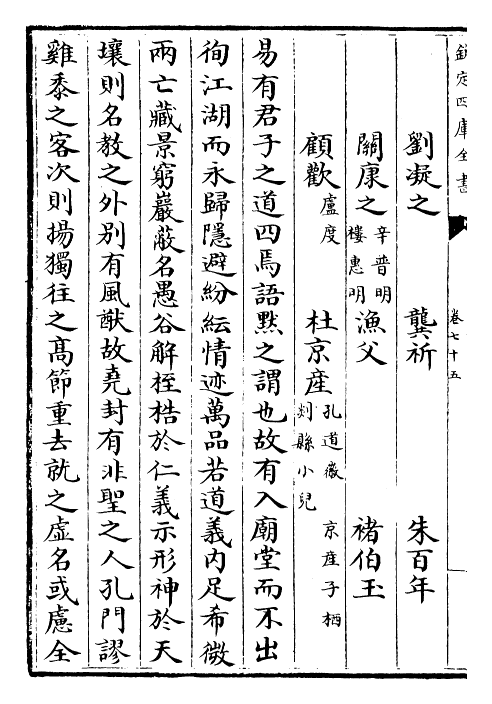 欽定四庫全書
卷七十五
劉凝之 龔祈 朱百年
關康之 辛普明 樓惠明 漁父 褚伯玉
顧歡 盧度 杜京産 孔道徽 京産子栖 剡縣小兒
易有君子之道四焉語黙之謂也故有入廟堂而不出
徇江湖而永歸隱避紛紜情迹萬品若道義内足希微
兩亡藏景窮巖蔽名愚谷解桎梏於仁義示形神於天
壤則名教之外别有風猷故堯封有非聖之人孔門謬
雞黍之客次則揚獨往之髙節重去就之虛名或慮全